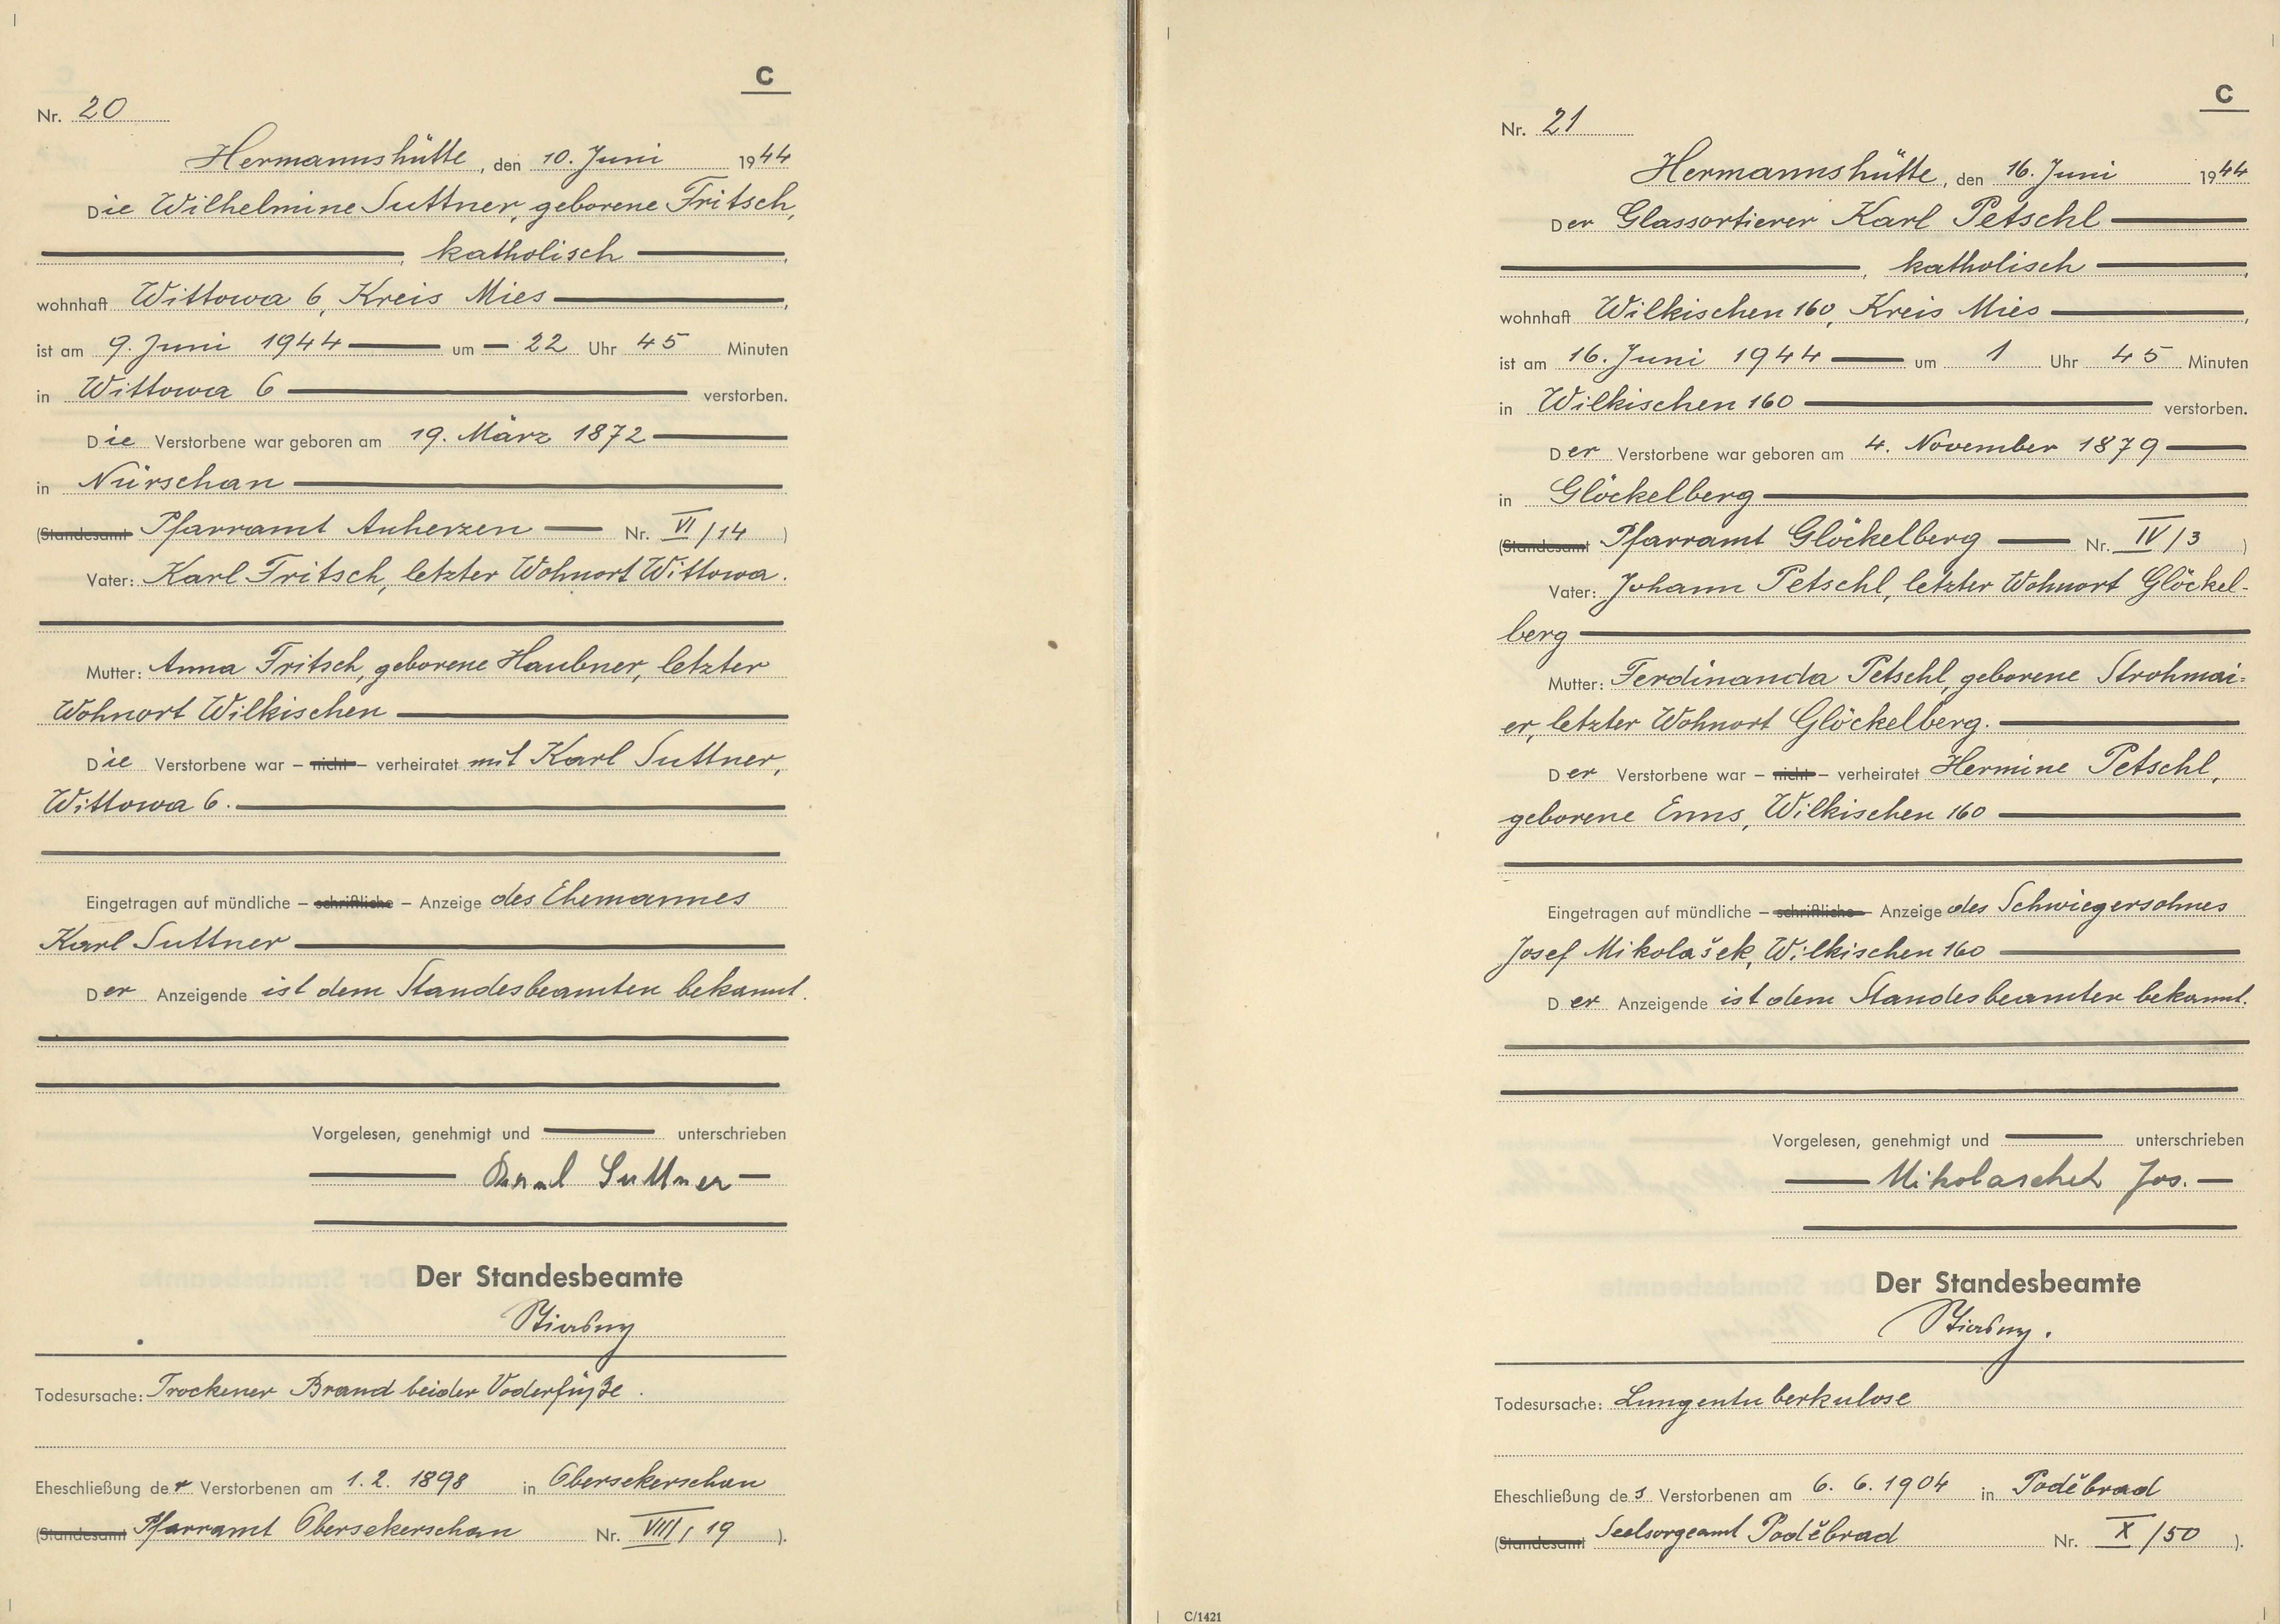 C
Nr. 20
Hermannshütte, den 10. Juni 1944
Die Wilhelmine Suttner, geborene Fritsch,
, katholisch ,
wohnhaft Wittowa 6, Kreis Mies ,
ist am 9. Juni 1944 um 22 Uhr 45 Minuten
in Wittowa 6 verstorben.
Die Verstorbene war geboren am 19. März 1872
in Nürschan
(Standesamt Pfarramt Auherzen Nr. VI/14 )
Vater: Karl Fritsch, letzter Wohnort Wittowa.
Mutter: Anna Fritsch, geborene Haubner, letzter
Wohnort Wilkischen
Die Verstorbene war – nicht – verheiratet mit Karl Suttner,
Wittowa 6.
Eingetragen auf mündliche – schriftliche – Anzeige des Ehemannes
Karl Suttner
Der Anzeigende ist dem Standesbeamten bekannt.
Vorgelesen, genehmigt und unterschrieben
Karl Suttner
Der Standesbeamte
Todesursache: Trockener Brand beider Voderfüße.
Eheschließung der Verstorbenen am 1. 2. 1898 in Obersekerschan
(Standesamt Pfarramt Obersekerschan Nr. VIII/19 ).
C
Nr. 21
Hermannshütte, den 16. Juni 1944
Der Glassortierer Karl Petschl
, katholisch ,
wohnhaft Wilkischen 160, Kreis Mies ,
ist am 16. Juni 1944 um 1 Uhr 45 Minuten
in Wilkischen 160 verstorben.
Der Verstorbene war geboren am 4. November 1879
in Glöckelberg
(Standesamt Pfarramt Glöckelberg Nr. IV/3 )
Vater: Johann Petschl, letzter Wohnort Glöckel-
berg
Mutter: Ferdinanda Petschl, geborene Strohmai-
er, letzter Wohnort Glöckelberg.
Der Verstorbene war – nicht – verheiratet Hermine Petschl,
geborene Enns, Wilkischen 160
Eingetragen auf mündliche – schriftliche – Anzeige des Schwiegersohnes
Josef Mikolašek, Wilkischen 160
Der Anzeigende ist dem Standesbeamten bekannt.
Vorgelesen, genehmigt und unterschrieben
Mikolaschek Jos.
Der Standesbeamte
Todesursache: Lungentuberkulose
Eheschließung des Verstorbenen am 6. 6. 1904 in Poděbrad
(Standesamt Seelsorgeamt Poděbrad Nr. X/50 ).
C/1421